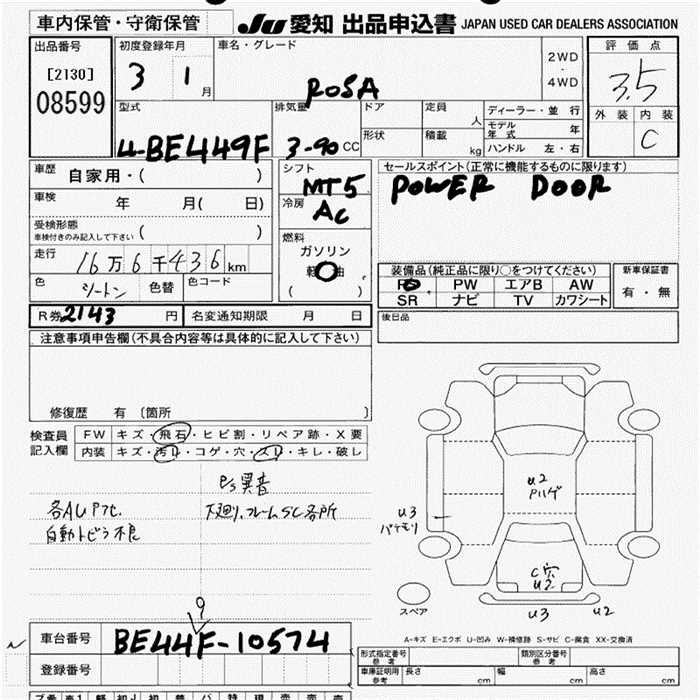 車内保管・守衛保管
JU 愛知 出品申込書 JAPAN USED CAR DEALERS ASSOCIATION
出品番号
[2130]
08599
初度登録年月
3 1 月
車名・グレード
ROSA
2WD
・
4WD
評価点
3.5
外装 内装
C
型式
U-BE449F
排気量
3-90 CC
ドア
形状
定員
人
積載
kg
ディーラー・並行
モデル年式 年
ハンドル 左・右
車歴
自家用・( )
車検
年 月( 日)
受検形態
車検付きのみ記入して下さい ( )
走行
16万6千436km
色
ツートン
色替
色コード
シフト
MT5
冷房
AC
燃料
ガソリン
軽油
( )
セールスポイント(正常に機能するものに限ります)
POWER DOOR
装備品(純正品に限り○をつけてください)
PW エアB AW
SR ナビ TV カワシート
新車保証書
有・無
R券 2143 円
名変通知期限 月 日
後日品
注意事項申告欄(不具合内容等は具体的に記入して下さい)
修復歴 有 〔箇所 〕
検査員
記入欄
FW キズ・飛石・ヒビ割・リペア跡・X要
内装 キズ・汚れ・コゲ・穴・スレ・キレ・破レ
P/S異音
各AUPサビ
下廻り、フレームSC各所
自動トビラ不良
U2
U3
C穴
U2
U3
U2
スペア
9
車台番号
BE44F-10574
登録番号
A-キズ E-エクボ U-凹み W-補修跡 S-サビ C-腐食 XX-交換済
形式指定番号
参考
類別区分番号
参考
車庫証明用
参考
長さ cm
幅 cm
高さ cm